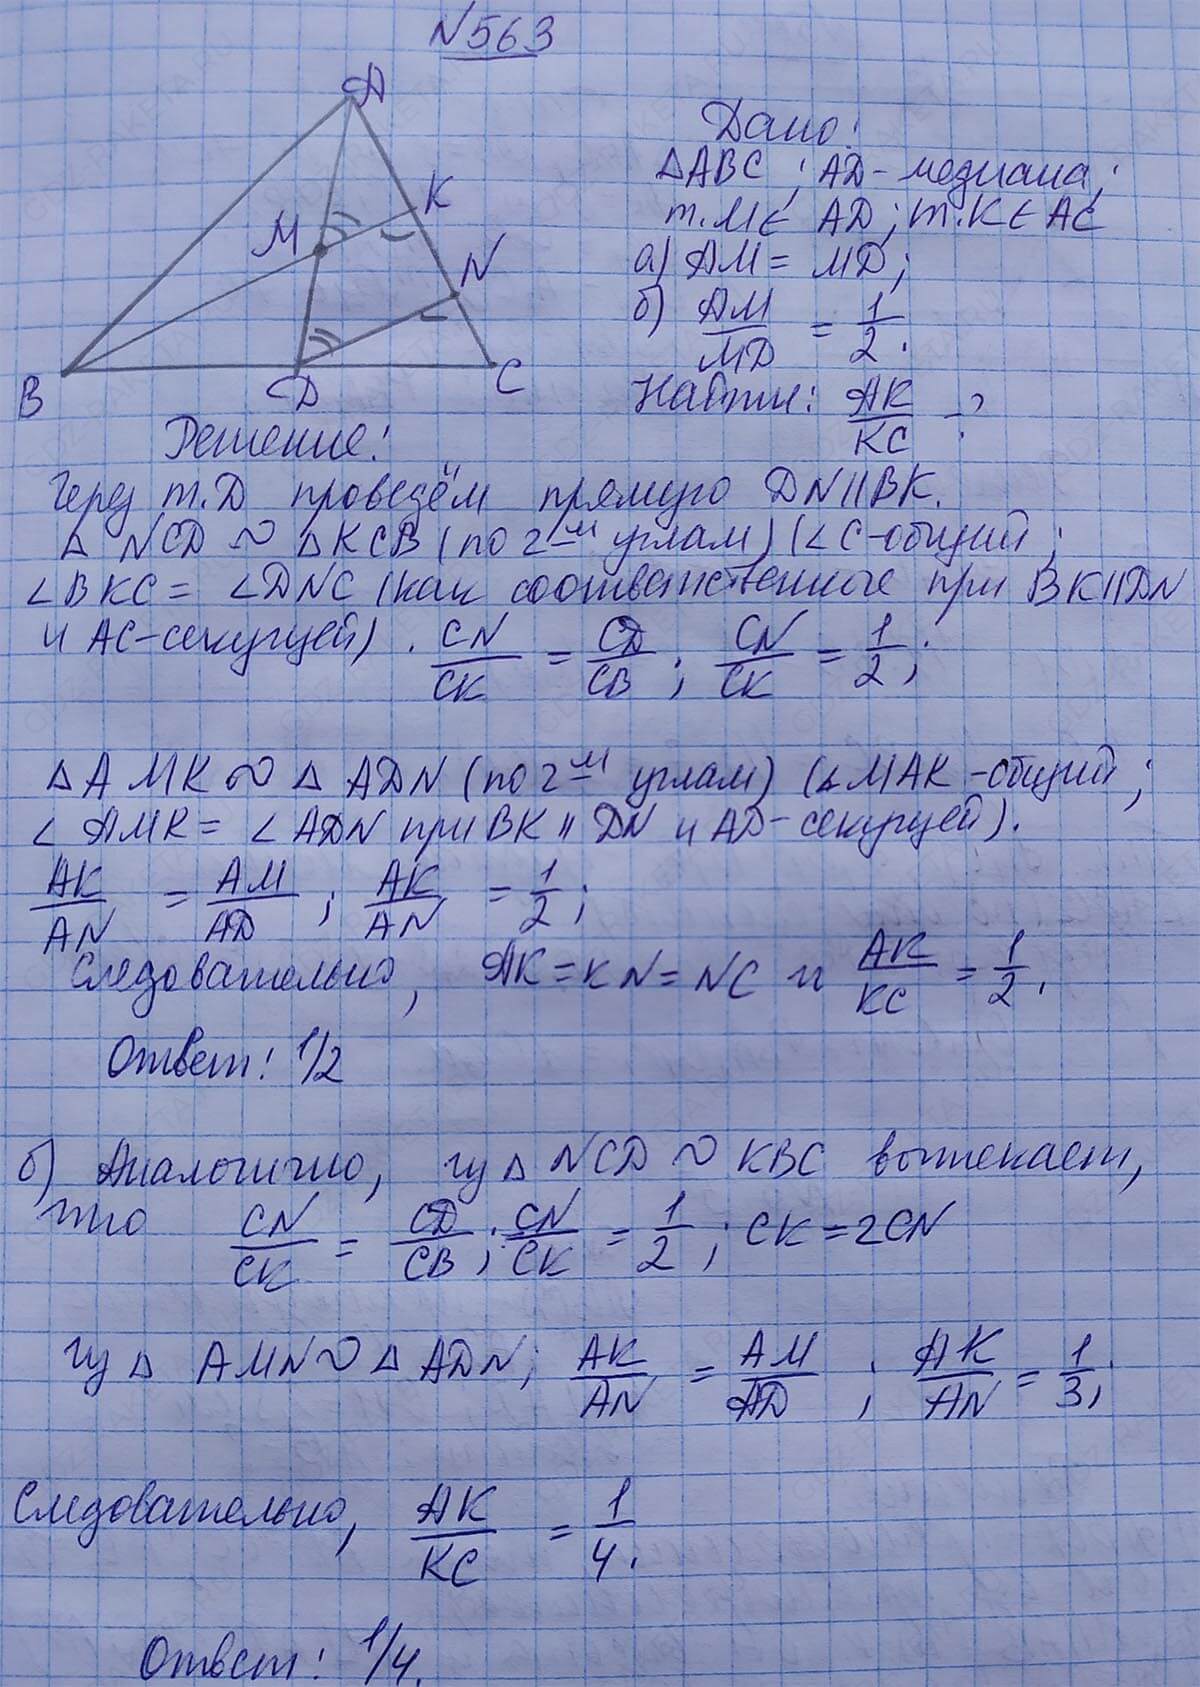 N563
A
K
M
N
B
D
C
Дано:
△ABC ; AD - медиана;
т.M ∈ AD ; т.K ∈ AC
а) AM = MD;
б) AM/MD = 1/2.
Найти: AK/KC - ?
Решение:
Через т.D проведём прямую DN || BK.
△ NCD ∾ △KCB (по 2-м углам) (∠C-общий;
∠BKC = ∠DNC (как соответственное при BK||DN
и AC-секущей). CN/CK = CD/CB ; CN/CK = 1/2;
△AMK ∾ △ ADN (по 2-м углам) (∠MAK - общий;
∠ AMK = ∠ADN при BK || DN и AD-секущей).
AK/AN = AM/AD ; AK/AN = 1/2;
Следовательно, AK = KN = NC и AK/KC = 1/2.
Ответ: 1/2
б) Аналогично, из △ NCD ∾ KBC вытекает,
что CN/CK = CD/CB ; CN/CK = 1/2 ; CK = 2CN
Из △ AMN ∾ △ ADN; AK/AN = AM/AD ; AK/AN = 1/3;
Следовательно, AK/KC = 1/4.
Ответ: 1/4.